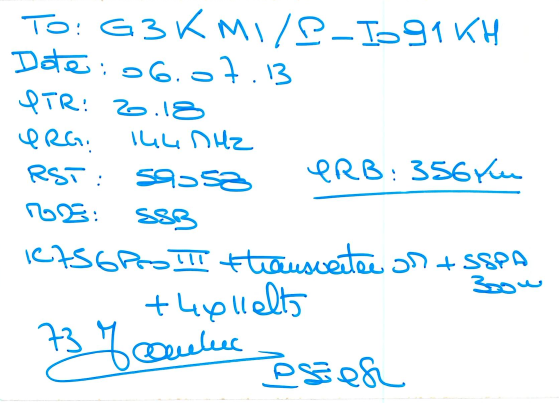 To: G3KMI/P - Io91KH
Date: 06.07.13
QTR: 20.18
QRG: 144 MHz
RST: 59053 QRB: 356 Km
MODE: SSB
IC756Pro III + transverter + SSPA
300w
+ 4
73
PSE QSL